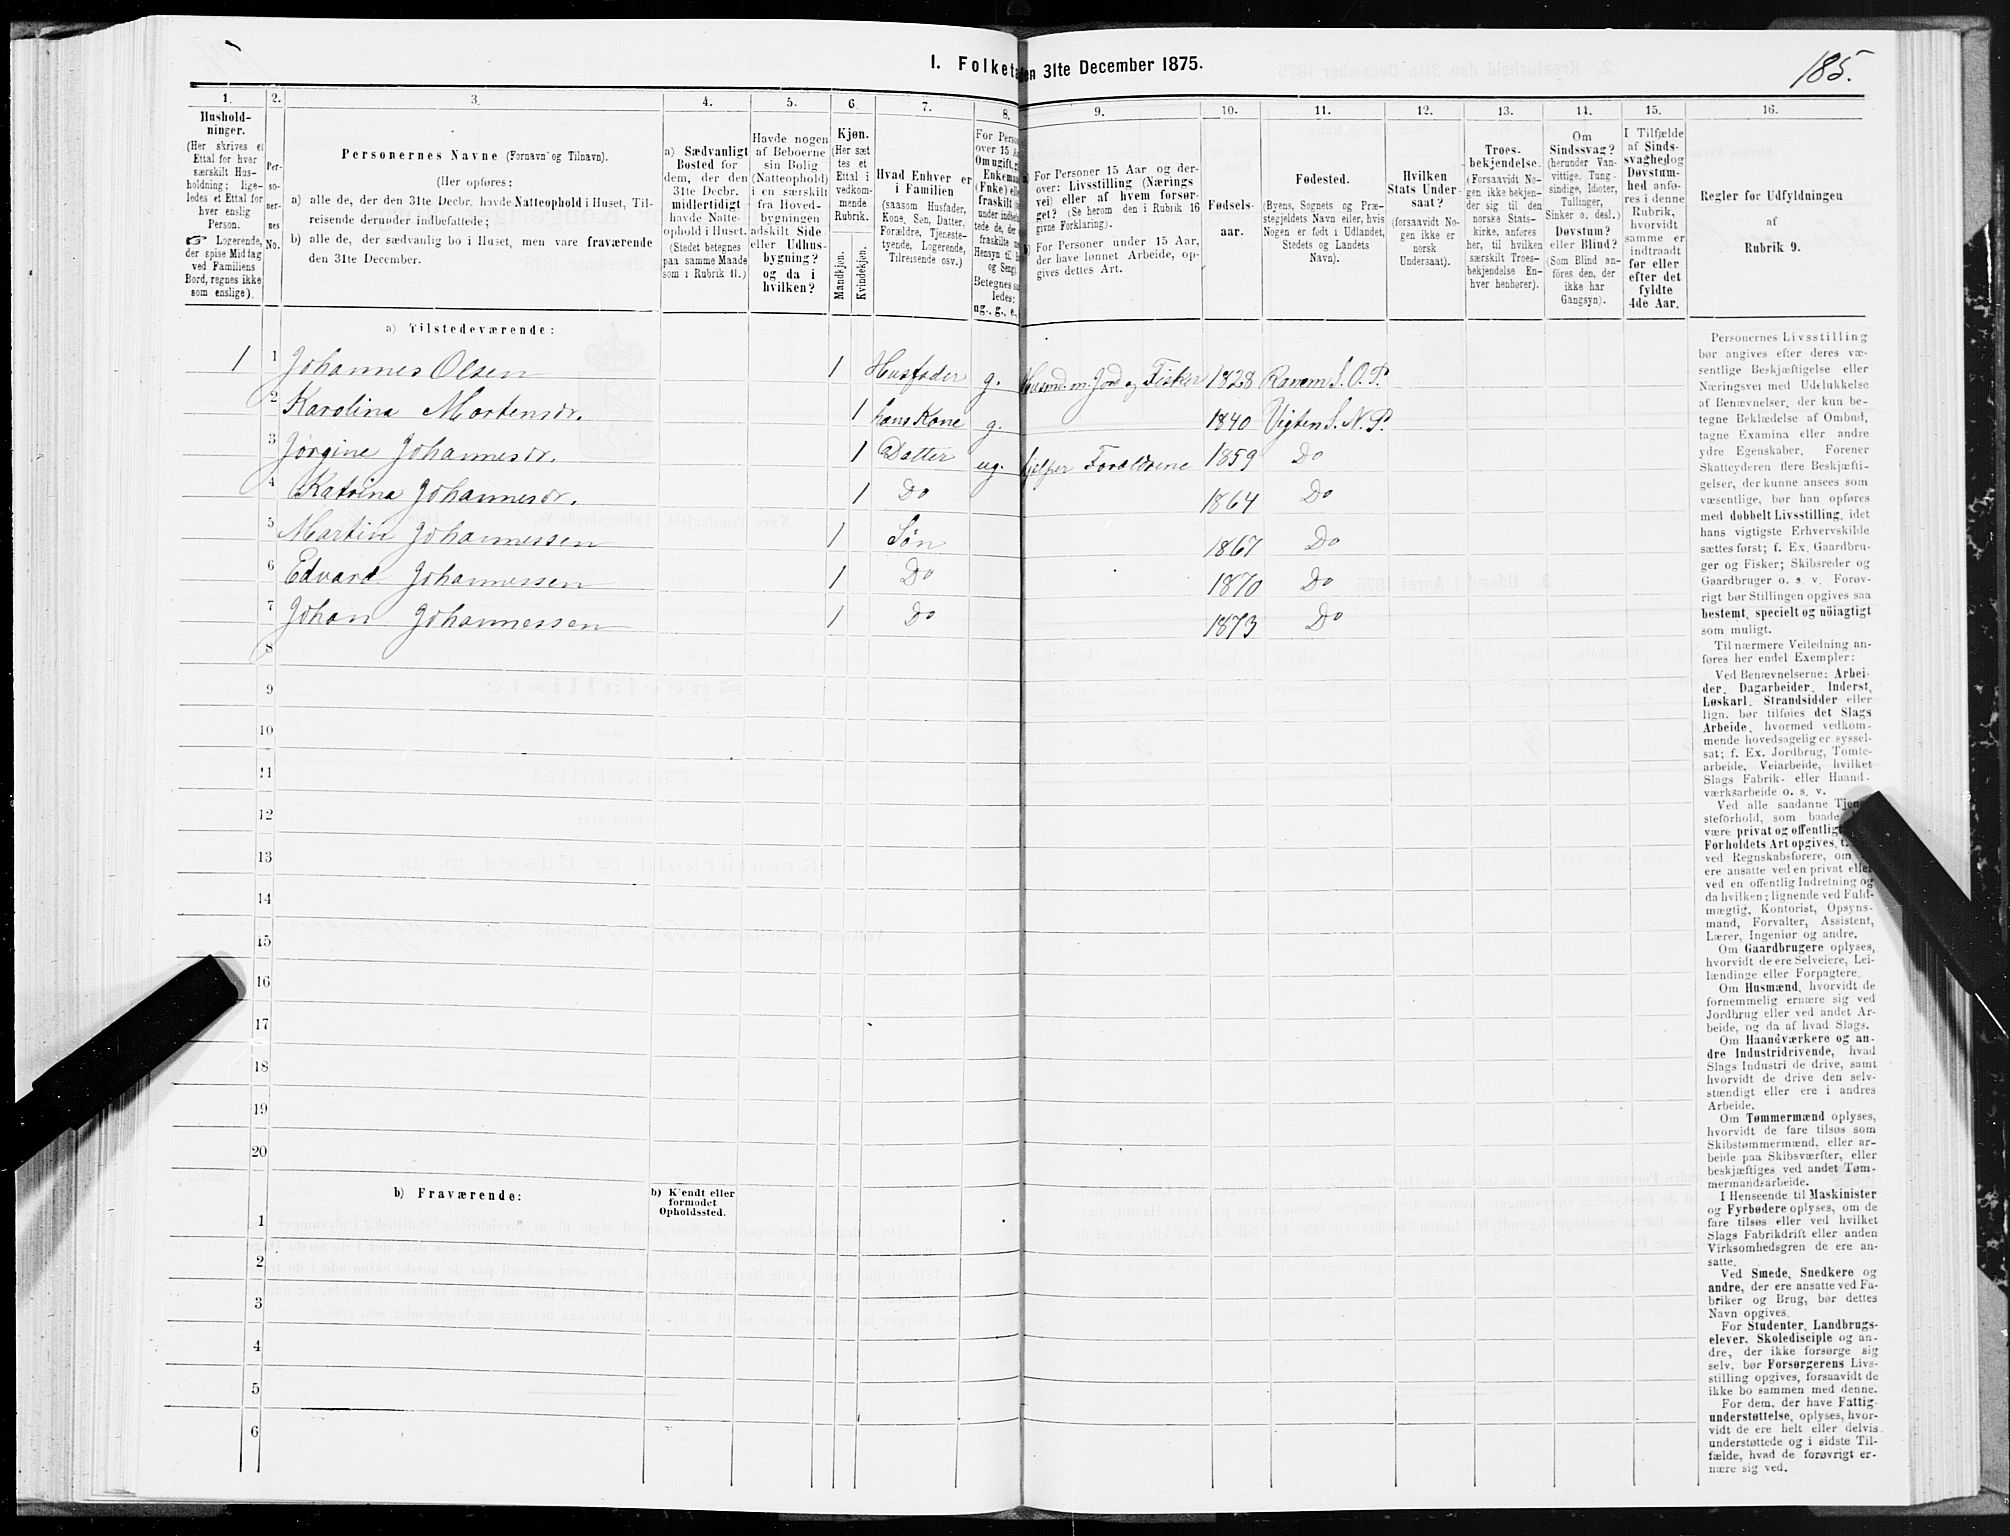 185.
I. Folketa en 31te December 1875.
1. 2. 3. 4. 5. 6. 7. 8. 9. 10. 11. 12. 13. 14. 15. 16.
Hushold-
ninger.
(Her skrives et
Ettal for hver
særskilt Hus-
holdning; lige-
ledes et Ettal for
hver enslig
Person.
☞ Logerende,
der spise Middag
ved Familiens
Bord, regnes ikke
som enslige).
Per-
so-
ner-
nes
No.
Personernes Navne (Fornavn og Tilnavn).
(Her opføres:
a) alle de, der den 31te Decbr. havde Natteophold i Huset, Til-
reisende derunder indbefattede;
b) alle de, der sædvanlig bo i Huset, men vare fraværende
den 31te December.
a) Sædvanligt
Bosted for
dem, der den
31te Decbr.
midlertidigt
havde Natte-
ophold i Huset.
(Stedet betegnes
paa samme Maade
som i Rubrik 11.)
Havde nogen
af Beboerne
sin Bolig
(Natteophold)
i en særskilt
fra Hoved-
bygningen
adskilt Side
eller Udhus-
bygning?
og da i
hvilken?
Kjøn.
(Her sæt-
tes et
Ettal i
vedkom-
mende
Rubrik.
Mandkjøn.
Kvindekjøn.
Hvad Enhver er
i Familien
(saasom Husfader,
Kone, Søn, Datter,
Forældre, Tjeneste-
tyende, Logerende,
Tilreisende osv.)
For Perso
over 15 Aa
Om ugift, g
Enkeman
(Fnke) elle
fraskilt
under indbe
tede de, der
fraskilte
Hensyn til
og Seng).
Betegnes sa
ledes:
ug., g., e.,
a) For Personer 15 Aar og der-
over: Livsstilling (Nærings
vei) eller af hvem forsør-
get? (Se herom den i Rubrik 16
givne Forklaring).
b) For Personer under 15 Aar,
der have lønnet Arbeide, op-
gives dettes Art.
Fødsels-
aar.
Fødested.
(Byens, Sognets og Præ-
stegjeldets Navn eller, hvis
Nogen er født i Udlandet,
Stedets og Landets
Navn).
Hvilken
Stats Under-
saat?
(forsaavidt No-
gen ikke er
norsk
Undersaat).
Troes-
bekjendelse.
(Forsaavidt No-
gen ikke bekjen-
der sig til den
norske Stats-
kirke, anføres
her, til hvilken
særskilt Troes-
bekjendelse En-
hver henhører).
Om
Sindssvag?
(herunder Van-
vittige, Tung-
sindige, Idioter,
Tullinger,
Sinker o. desl.)
Døvstum?
eller Blind?
(Som Blind an-
føres den, der
ikke har
Gangsyn).
I Tilfælde
af Sinds-
svaghed og
Døvstum-
hed anfø-
res i denne
Rubrik,
hvorvidt
samme er
indtraadt
før eller
efter det
fyldte
4de Aar.
Regler for Udfyldningen
af
Rubrik 9.
a) Tilstedeværende:
1 1 Johannes Olsen 1 Husfader g. Husmd. m. Jord og Fisker 1828 Ranem S. O. P.
2 Karolina Mortensdr. 1 hans Kone g. 1840 Vigten S. N. P.
3 Jørgine Johannesdr. 1 Datter ug. hjelper Forældrene 1859 Do
4 Katrina Johannesdr. 1 Do 1864 Do
5 Martin Johannessen 1 Søn 1867 Do
6 Edvard Johannessen 1 Do 1870 Do
7 Johan Johannessen 1 Do 1873 Do
8
9
10
11
12
13
14
15
16
17
18
19
20
b) Fraværende:
b) Kendt eller
formodet
Opholdssted.
1
2
3
4
5
6
Personernes Livsstilling
bør angives efter deres væ-
sentlige Beskjæftigelse eller
Næringsvei med Udelukkelse
af Benævnelser, der kun be-
tegne Beklædelse af Ombud,
tagne Examina eller andre
ydre Egenskaber. Forener
Skatteyderen flere Beskjæfti-
gelser, der kunne ansees som
væsentlige, bør han opføres
med dobbelt Livsstilling, idet
hans vigtigste Erhvervskilde
sættes først; f. Ex. Gaardbru-
ger og Fisker; Skibsreder og
Gaardbruger o. s. v. Forøv-
rigt bør Stillingen opgives saa
bestemt, specielt og nöiagtigt
som muligt.
Til nærmere Veiledning an-
føres her endel Exempler:
Ved Benævnelserne: Arbei-
der, Dagarbeider, Inderst,
Løskarl, Strandsidder eller
lign. bør tilføies det Slags
Arbeide, hvormed vedkom-
mende hovedsagelig er syssel-
sat; f. Ex. Jordbrug, Tomte-
arbeide, Veiarbeide, hvilket
Slags Fabrik- eller Haand-
værksarbeide o. s. v.
Ved alle saadanne Tjene
steforhold, som baade
være privat og offentlig
Forholdets Art opgives, t.
ved Regnskabsførere, om
ere ansatte ved en privat eller
ved en offentlig Indretning og
da hvilken; lignende ved Fuld-
mægtig, Kontorist, Opsyns-
mand, Forvalter, Assistent,
Lærer, Ingeniør og andre.
Om Gaardbrugere oplyses,
hvorvidt de ere Selveiere, Lei-
lændinge eller Forpagtere.
Om Husmænd, hvorvidt de
fornemmelig ernære sig ved
Jordbrug eller ved andet Ar-
beide, og da af hvad Slags.
Om Haandværkere og an-
dre Industridrivende, hvad
Slags Industri de drive, samt
hvorvidt de drive den selv-
stændigt eller ere i andres
Arbeide.
Om Tømmermænd oplyses,
hvorvidt de fare tilsøs som
Skibstømmermænd, eller ar-
beide paa Skibsværfter, eller
beskjæftiges ved andet Tøm-
mermandsarbeide.
I Henseende til Maskinister
og Fyrbødere oplyses, om de
fare tilsøs eller ved hvilket
Slags Fabrikdrift eller anden
Virksomhedsgren de ere an-
satte.
Ved Smede, Snedkere og
andre, der ere ansatte ved Fa-
briker og Brug, bør dettes
Navn opgives.
For Studenter, Landbrugs-
elever, Skoledisciple og an-
dre, der ikke forsørge sig
selv, bør Forsørgerens Livs-
stilling opgives, forsaavidt de
ikke bo sammen med denne.
For dem, der have Fattig-
understøttelse, oplyses, hvor-
vidt de ere helt eller delvis
understøttede og i sidste Til-
fælde, hvad de forøvrigt er-
nære sig ved.